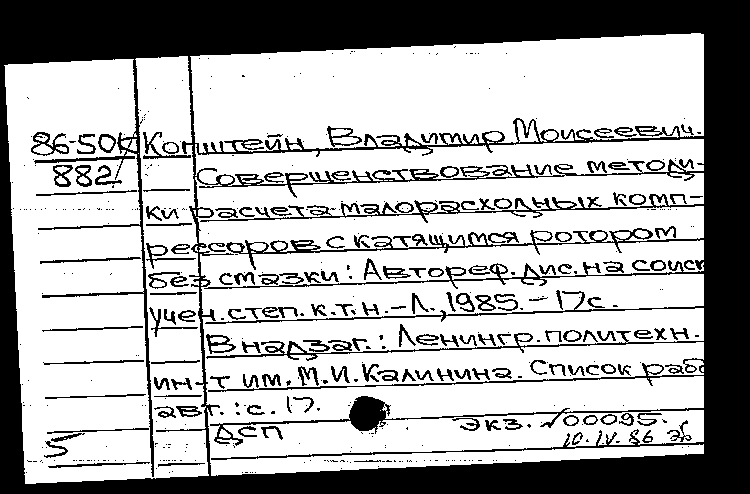 86-50К Копштейн, Владимир Моисеевич.
882 Совершенствование методи-
ки расчета малорасходных комп-
рессоров с катящимся ротором
без смазки: Автореф. дис. на соиск
учен. степ. к.т.н. -Л., 1985. - 17с.
В надзаг.: Ленингр. политехн.
ин-т им. М.И. Калинина. Список раб
авт.: с. 17.
5 ДСП экз. √00095.
10. IV. 86